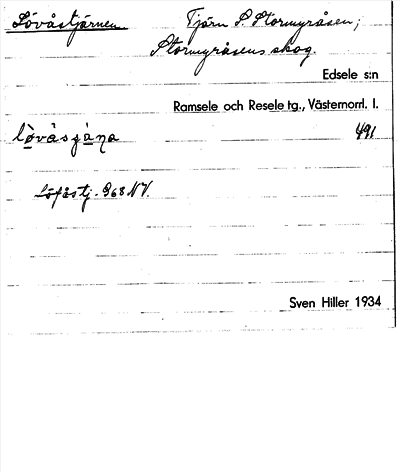 Lövåstjärnen Tjärn S. Stormyråsen;
Stormyråsens skog.
Edsele s:n
Ramsele och Resele tg., Västernorrl. l.
491
Löfåstj. 968 NV.
Sven Hiller 1934